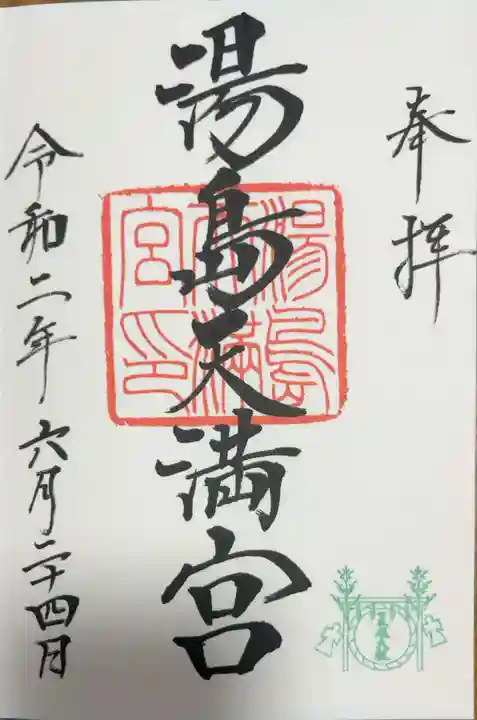 奉拝
湯島天満宮
湯島天満宮印
令和二年六月二十四日
夏越大祓